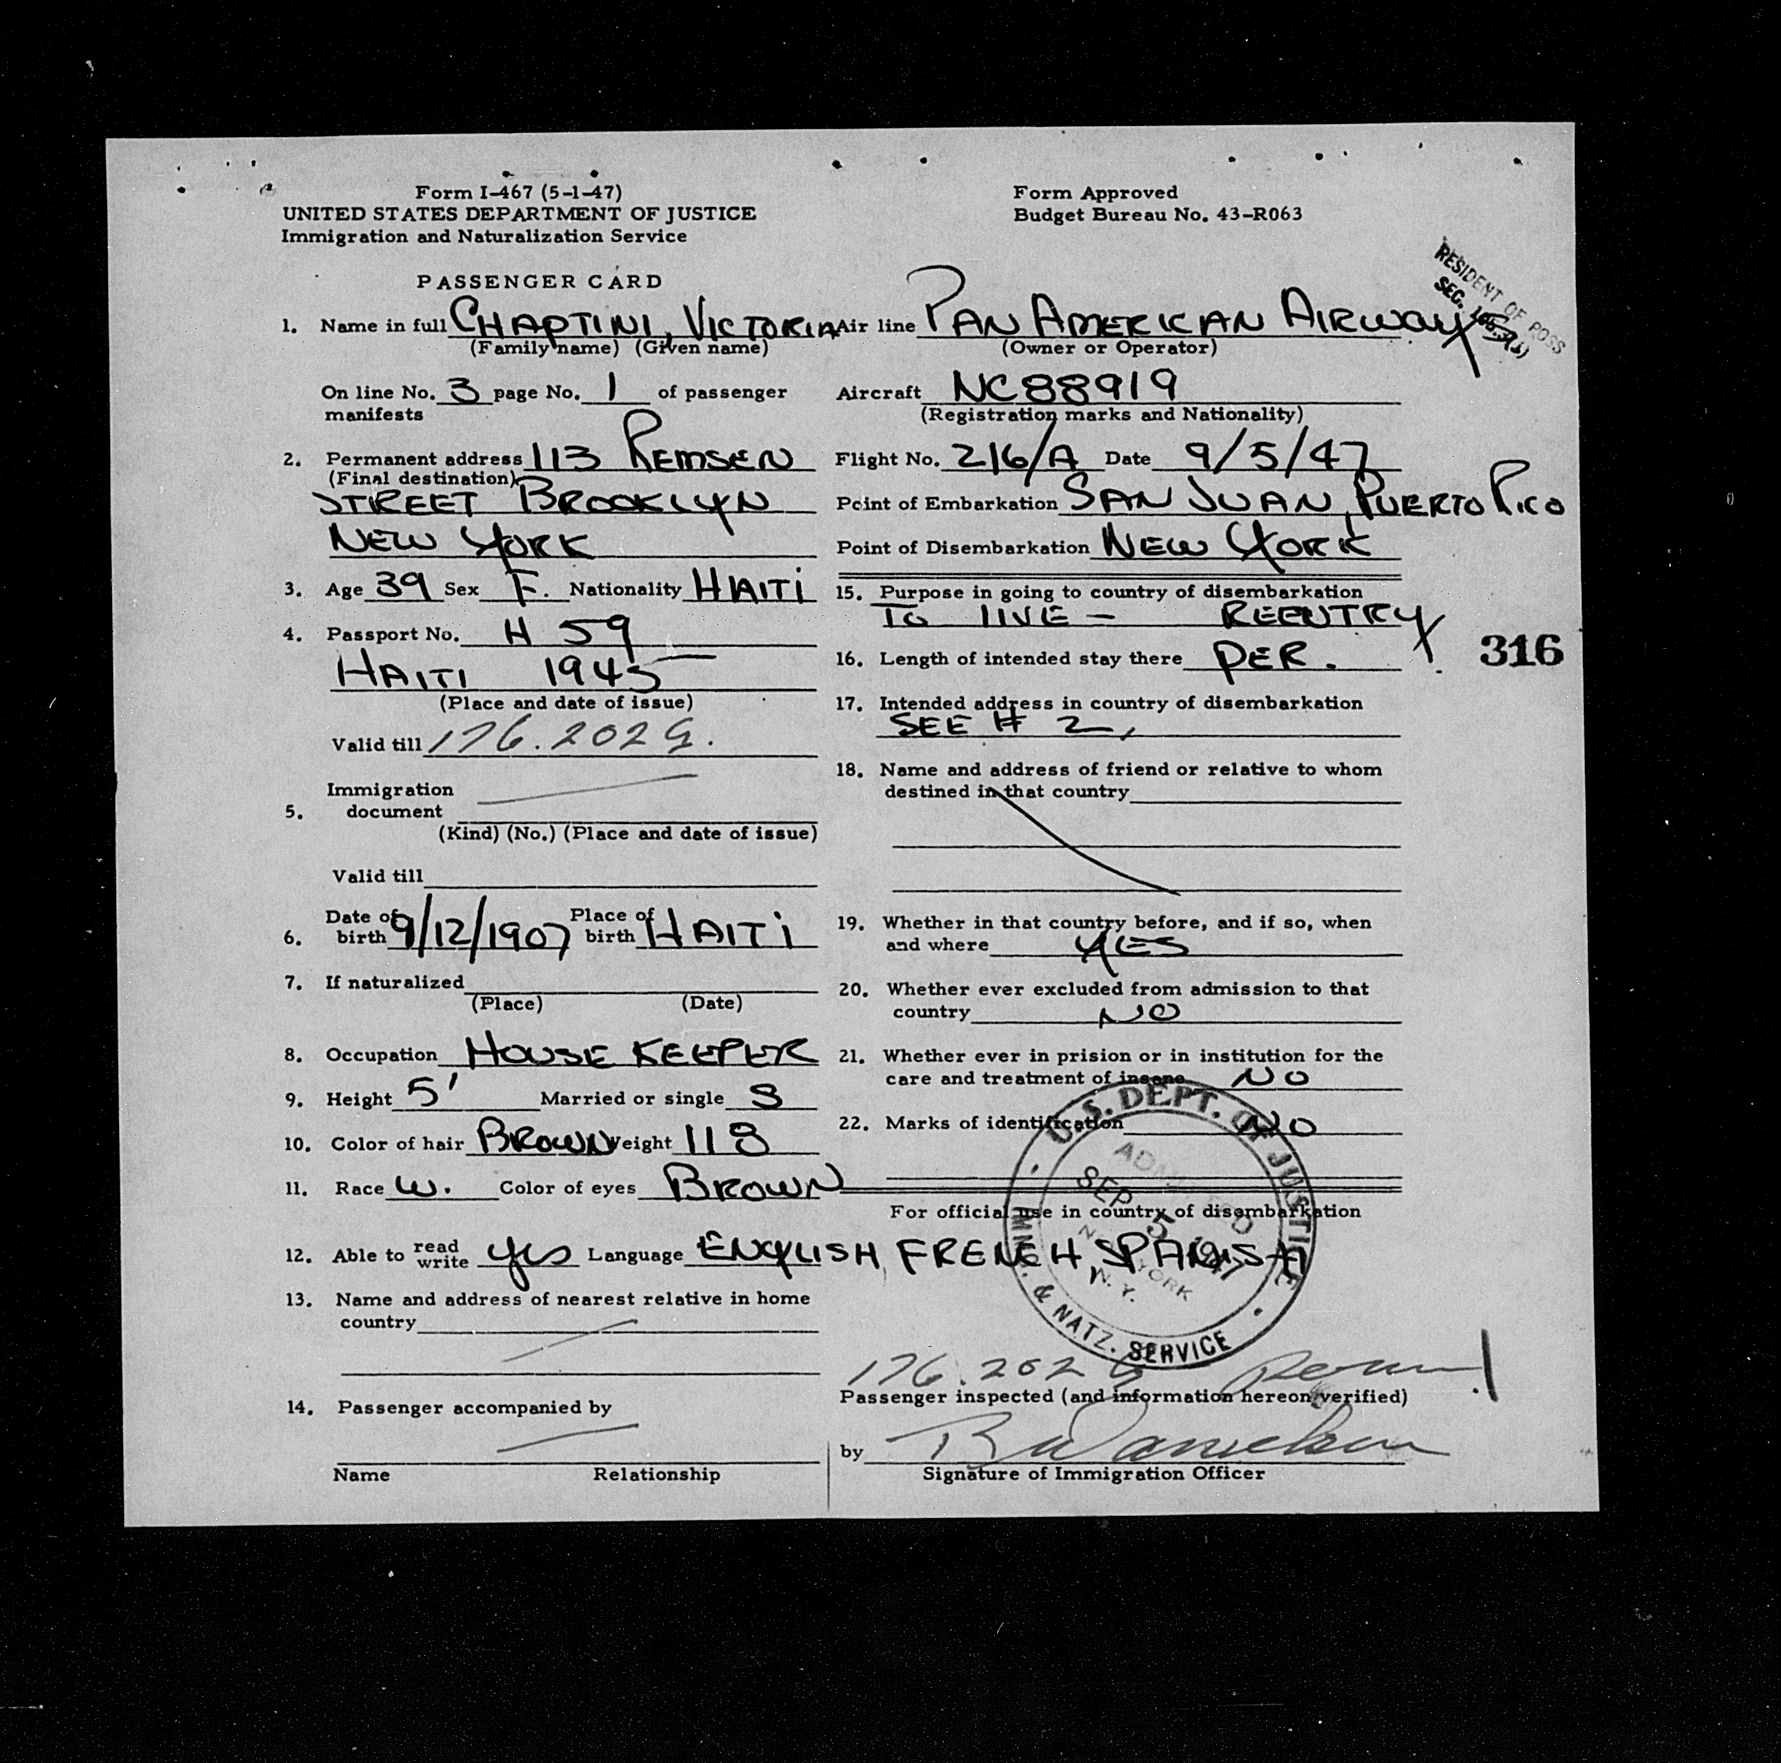 Form I-467 (5-1-47)
UNITED STATES DEPARTMENT OF JUSTICE
Immigration and Naturalization Service
PASSENGER CARD
1. Name in full CHAPTINI, VICTORIA
(Family name) (Given name)
On line No. 3 page No. 1 of passenger
manifests
2. Permanent address 113 REMSEN
(Final destination)
STREET BROOKLYN
NEW YORK
3. Age 39 Sex F. Nationality HAITI
4. Passport No. H 59
HAITI 1945
(Place and date of issue)
Valid till 176.202 G.
Immigration
5. document
(Kind) (No.) (Place and date of issue)
Valid till
Date of Place of
6. birth 9/12/1907 birth HAITI
7. If naturalized
(Place) (Date)
8. Occupation HOUSE KEEPER
9. Height 5' Married or single S
10. Color of hair BROWN Weight 118
11. Race W. Color of eyes BROWN
12. Able to read write yes Language ENGLISH, FRENCH, SPANISH
13. Name and address of nearest relative in home
country
14. Passenger accompanied by
Name Relationship
Form Approved
Budget Bureau No. 43-R063
RESIDENT OF POSS
SEC.
Air line PAN AMERICAN AIRWAYS
(Owner or Operator)
Aircraft NC88919
(Registration marks and Nationality)
Flight No. 216/A Date 9/5/47
Point of Embarkation SAN JUAN, PUERTO RICO
Point of Disembarkation NEW YORK
15. Purpose in going to country of disembarkation
TO LIVE - REENTRY
316
16. Length of intended stay there PER.
17. Intended address in country of disembarkation
SEE # 2,
18. Name and address of friend or relative to whom
destined in that country
19. Whether in that country before, and if so, when
and where YES
20. Whether ever excluded from admission to that
country NO
21. Whether ever in prision or in institution for the
care and treatment of insane NO
22. Marks of identification NO
For official use in country of disembarkation
U.S. DEPT. OF JUSTICE
ADMITTED
SEP 5 1947
NEW YORK
N. Y.
IMM. & NATZ. SERVICE
176.202 G
Passenger inspected (and information hereon verified)
by
Signature of Immigration Officer